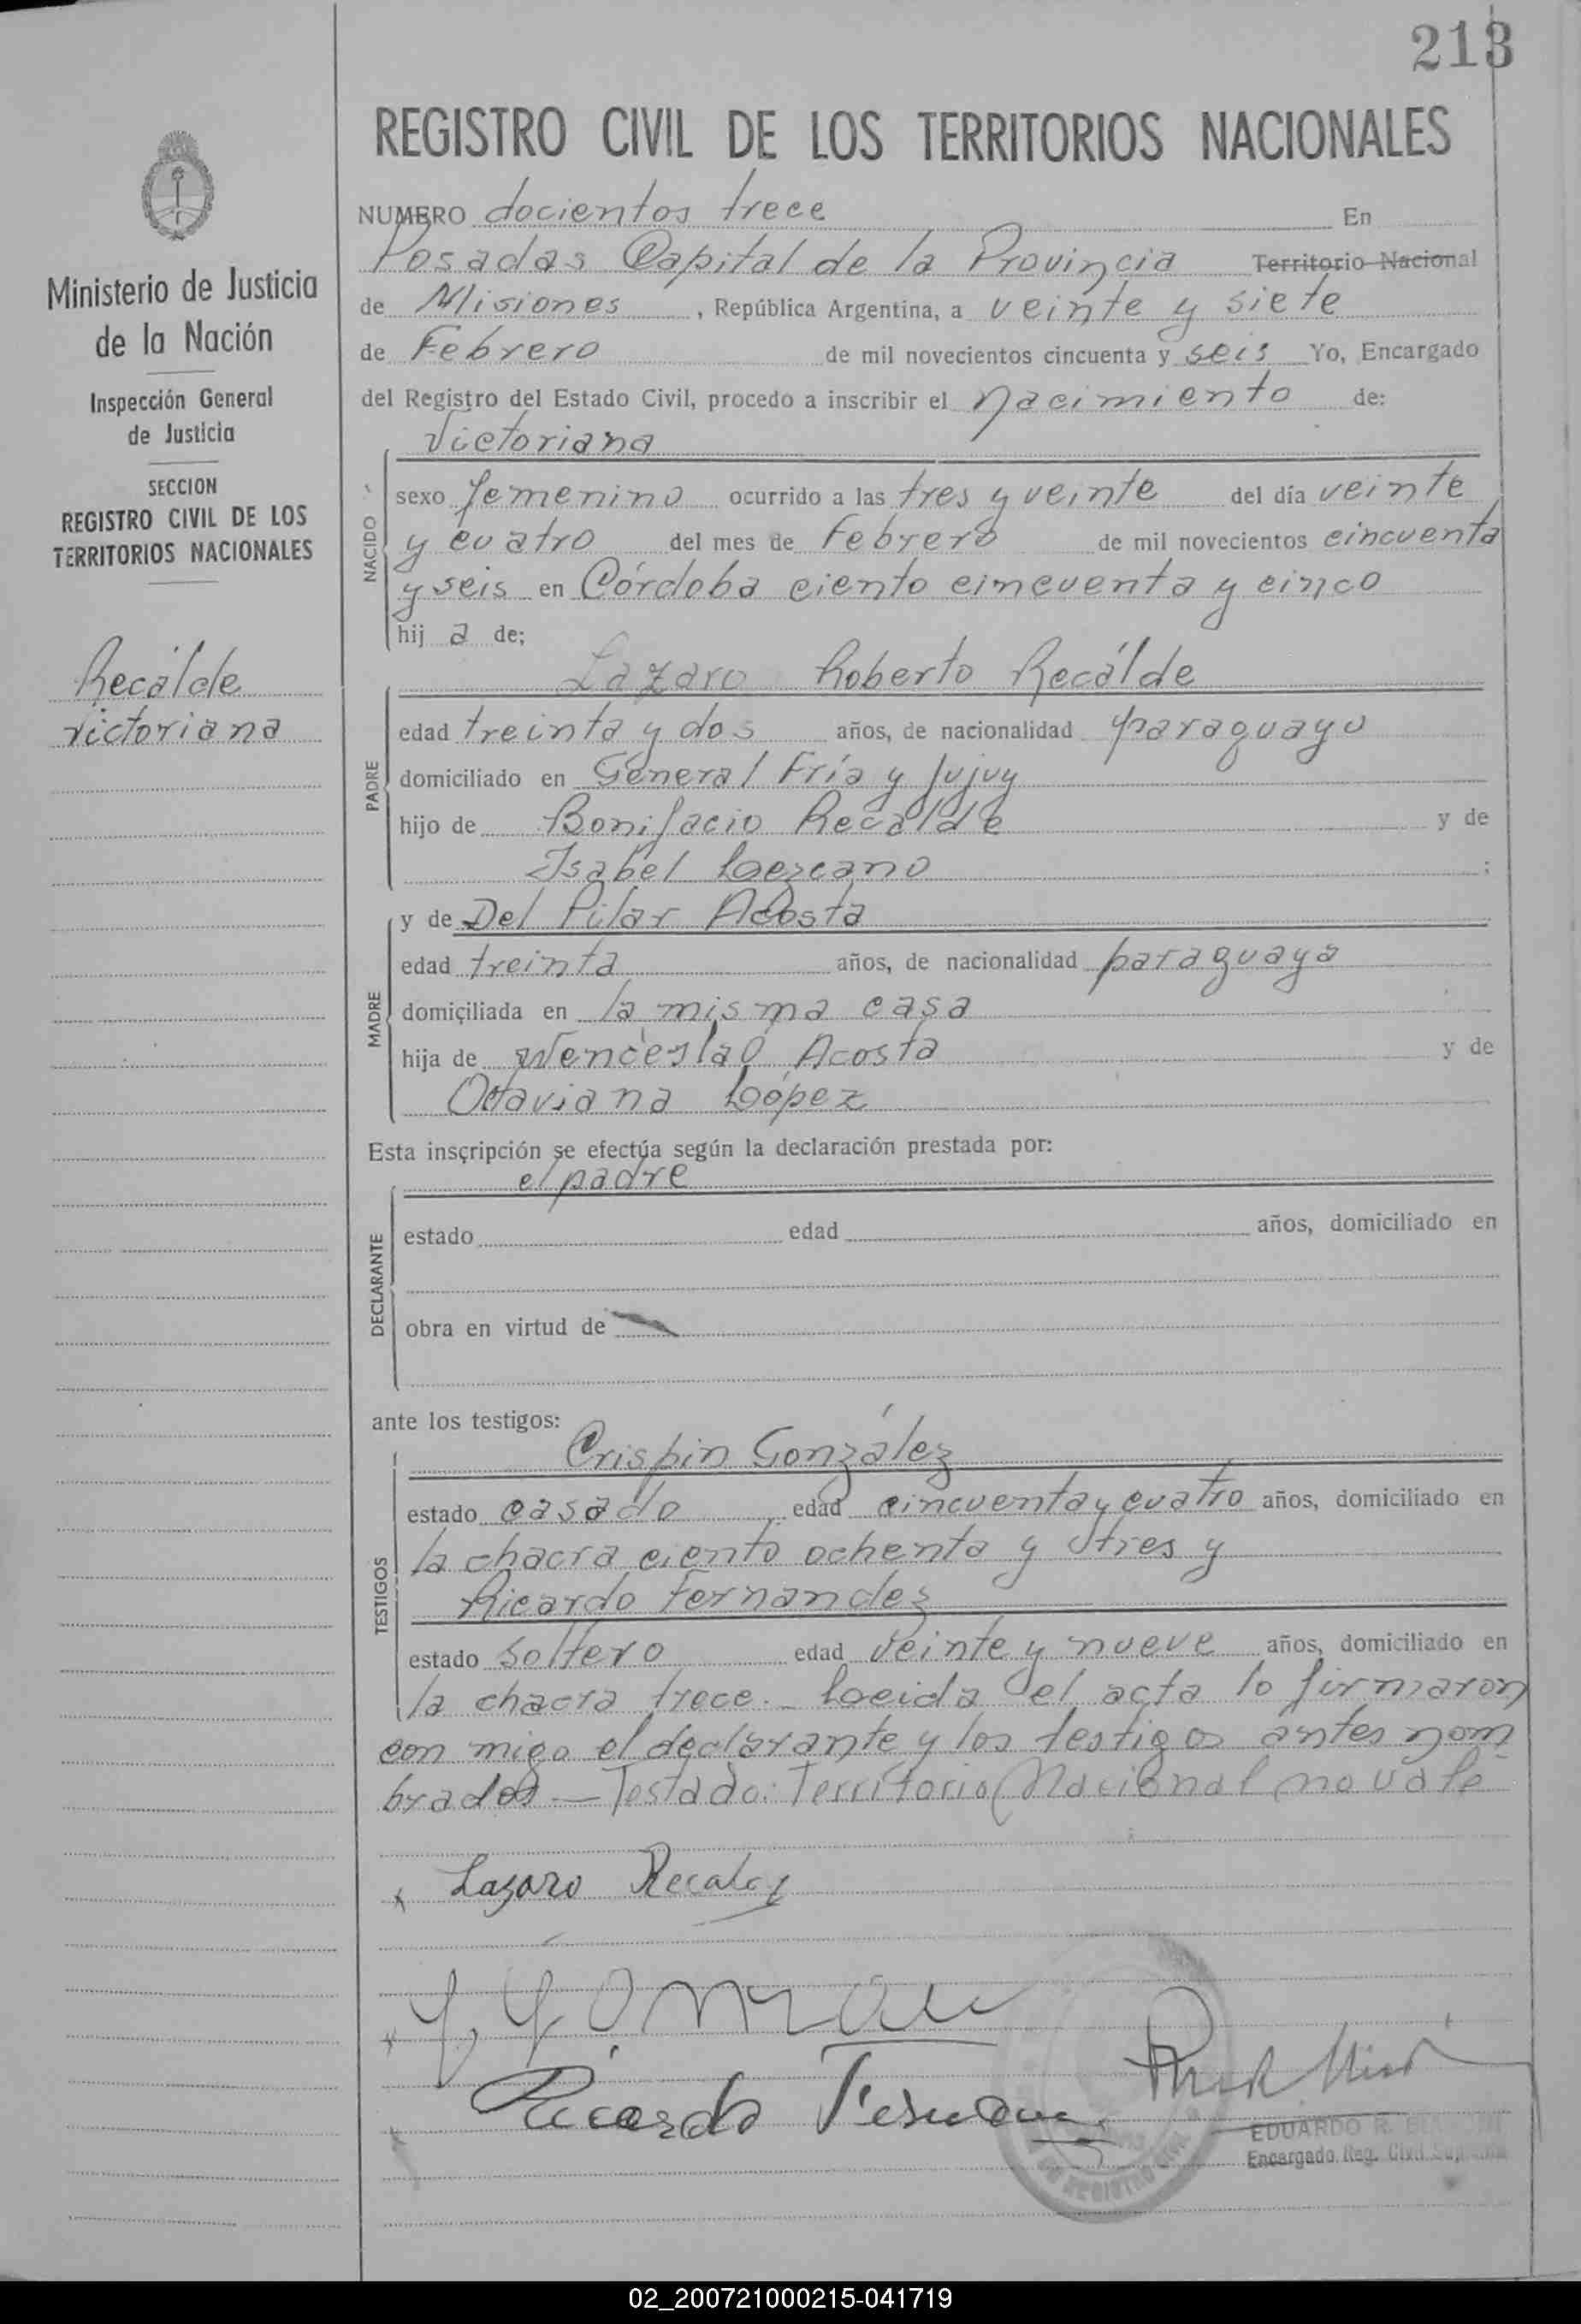 213
REGISTRO CIVIL DE LOS TERRITORIOS NACIONALES
Ministerio de Justicia
de la Nación
Inspección General
de Justicia
SECCION
REGISTRO CIVIL DE LOS
TERRITORIOS NACIONALES
Recálde
Victoriana
NUMERO docientos trece En
Posadas Capital de la Provincia Territorio Nacional
de Misiones , República Argentina, a veinte y siete
de Febrero de mil novecientos cincuenta y seis Yo, Encargado
del Registro del Estado Civil, procedo a inscribir el nacimiento de:
Victoriana
NACIDO
sexo femenino ocurrido a las tres y veinte del día veinte
y cuatro del mes de Febrero de mil novecientos cincuenta
y seis en Córdoba ciento cincuenta y cinco
hij a de;
Lazaro Roberto Recálde
PADRE
edad treinta y dos años, de nacionalidad paraguayo
domiciliado en General Fría y Jujuy
hijo de Bonifacio Recalde y de
Isabel Lezcano ;
MADRE
y de Del Pilar Acosta
edad treinta años, de nacionalidad paraguaya
domiciliada en la misma casa
hija de Wenceslao Acosta y de
Octaviana López
Esta inscripción se efectúa según la declaración prestada por:
el padre
DECLARANTE
estado edad años, domiciliado en
obra en virtud de
ante los testigos:
Crispin González
TESTIGOS
estado casado edad cincuenta y cuatro años, domiciliado en
la chacra ciento ochenta y tres y
Ricardo Fernandez
estado soltero edad veinte y nueve años, domiciliado en
la chacra trece. - Leeida el acta lo firmaron
con migo el declarante y los testigos antes nom
brados — Testado: Territorio Nacional no vale
x Lazaro Recalde
Ricardo Fernandez
EDUARDO R.
Encargado Reg. Civil
REGISTRO CIVIL
02_200721000215-041719